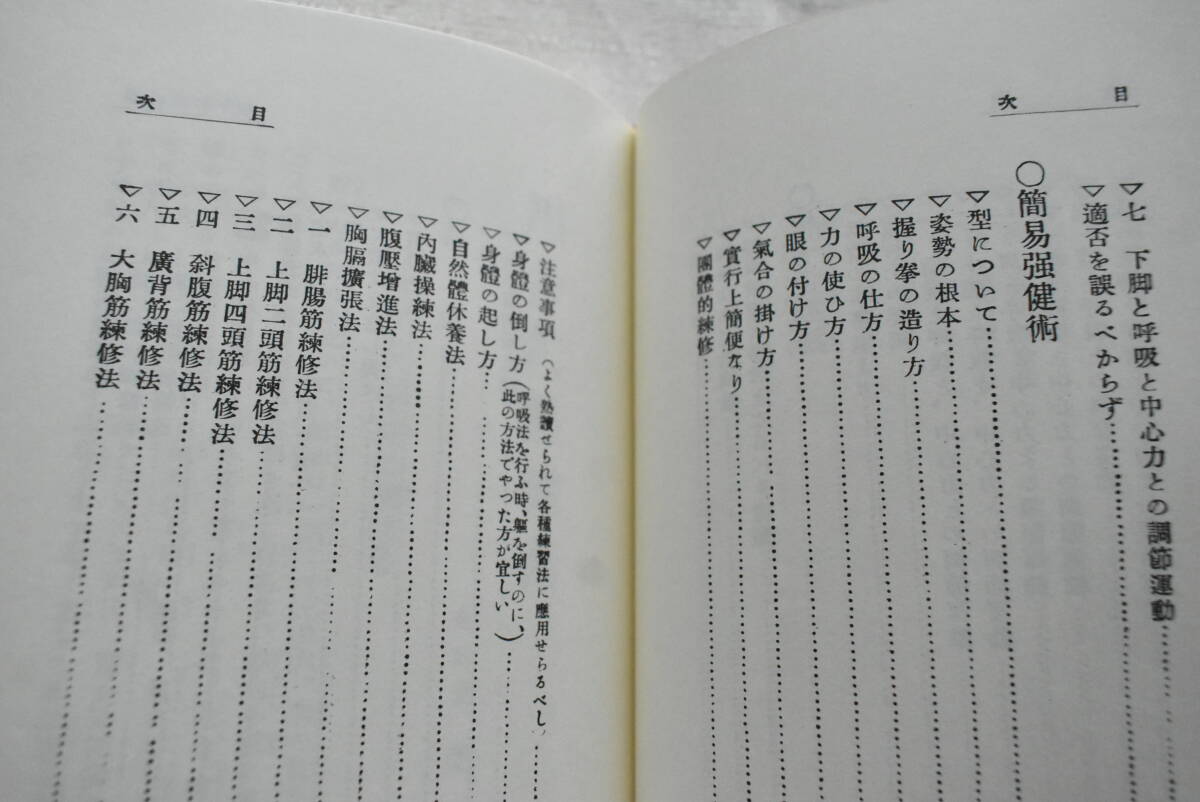 目次
▽七 下脚と呼吸と中心力との調節運動
▽適否を誤るべからず
○簡易强健術
▽型について
▽姿勢の根本
▽握り拳の造り方
▽呼吸の仕方
▽力の使ひ方
▽眼の付け方
▽氣合の掛け方
▽實行上簡便なり
▽團體的練修
目次
▽注意事項(よく熟讀せられて各種練習法に應用せらるべし)
▽身體の倒し方(呼吸法を行ふ時、軀を倒すのに、此の方法でやった方が宜しい)
▽身體の起し方
▽自然體休養法
▽內臟操練法
▽腹壓增進法
▽胸膈擴張法
▽一 腓腸筋練修法
▽二 上脚二頭筋練修法
▽三 上脚四頭筋練修法
▽四 斜腹筋練修法
▽五 廣背筋練修法
▽六 大胸筋練修法